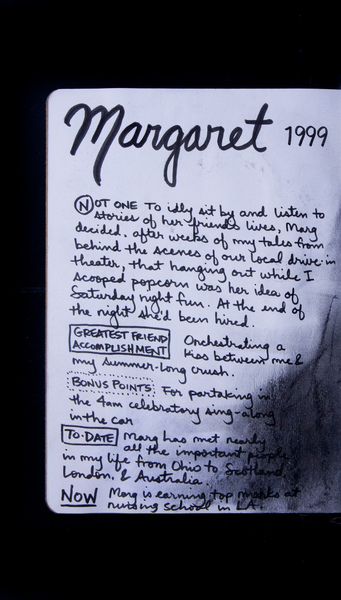 Margaret 1999
NOT ONE TO idly sit by and listen to
stories of her friends lives, Marg
decided, after weeks of my tales from
behind the scenes of our local drive-in
theater, that hanging out while I
scooped popcorn was her idea of
Saturday night fun. At the end of
the night she'd been hired.
GREATEST FRIEND
ACCOMPLISHMENT Orchestrating a
kiss between me &
my summer-long crush.
BONUS POINTS: For partaking in
the 4am celebratory sing-along
in the car
TO-DATE Marg has met nearly
all the important people
in my life from Ohio to Scotland,
London, & Australia.
NOW Marg is earning top marks at
nursing school in LA.